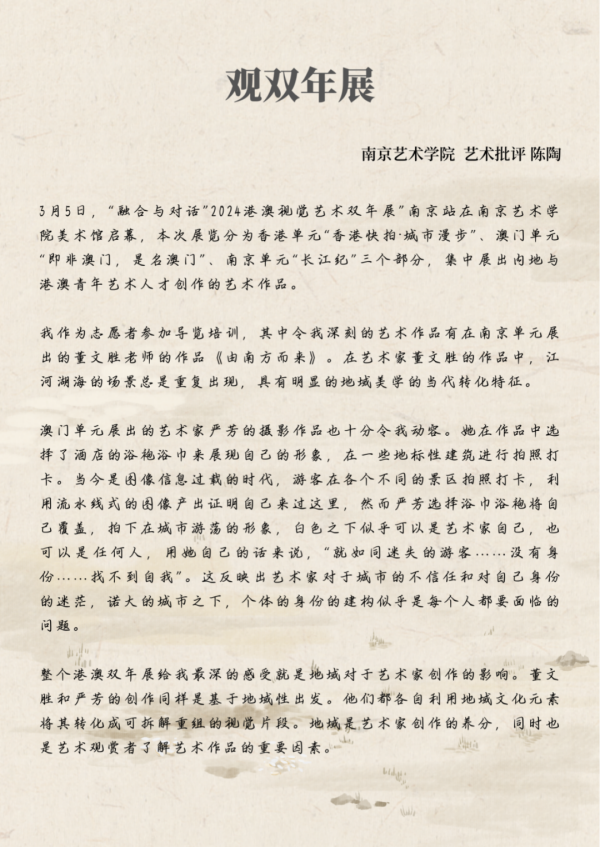 观双年展
南京艺术学院 艺术批评 陈陶
3月5日，“融合与对话”2024港澳视觉艺术双年展”南京站在南京艺术学
院美术馆启幕，本次展览分为香港单元“香港快拍·城市漫步”、澳门单元
“即非澳门，是名澳门”、南京单元“长江纪”三个部分，集中展出内地与
港澳青年艺术人才创作的艺术作品。
我作为志愿者参加导览培训，其中令我深刻的艺术作品有在南京单元展
出的董文胜老师的作品《由南方而来》。在艺术家董文胜的作品中，江
河湖海的场景总是重复出现，具有明显的地域美学的当代转化特征。
澳门单元展出的艺术家严芳的摄影作品也十分令我动容。她在作品中选
择了酒店的浴袍浴巾来展现自己的形象，在一些地标性建筑进行拍照打
卡。当今是图像信息过载的时代，游客在各个不同的景区拍照打卡，利
用流水线式的图像产出证明自己来过这里，然而严芳选择浴巾浴袍将自
己覆盖，拍下在城市游荡的形象，白色之下似乎可以是艺术家自己，也
可以是任何人，用她自己的话来说，“就如同迷失的游客……没有身
份……找不到自我”。这反映出艺术家对于城市的不信任和对自己身份
的迷茫，诺大的城市之下，个体的身份的建构似乎是每个人都要面临的
问题。
整个港澳双年展给我最深的感受就是地域对于艺术家创作的影响。董文
胜和严芳的创作同样是基于地域性出发。他们都各自利用地域文化元素
将其转化成可拆解重组的视觉片段。地域是艺术家创作的养分，同时也
是艺术观赏者了解艺术作品的重要因素。